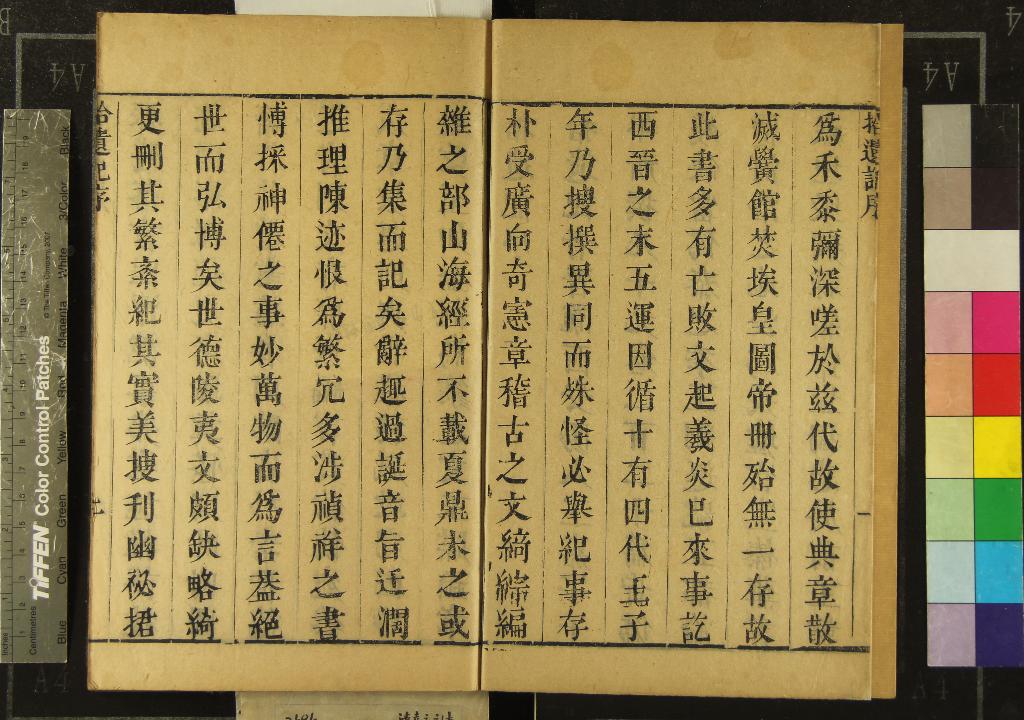 拾遺記序
為禾黍彌深嗟於茲代故使典章散
滅黌館焚埃皇圖帝冊殆無一存故
此書多有亡敗文起羲炎已來事訖
西晉之末五運因循十有四代王子
年乃搜撰異同而殊怪必舉紀事存
朴受廣向奇憲章稽古之文綺綜編
雜之部山海經所不載夏鼎未之或
存乃集而記矣辭趣過誕音旨迂濶
推理陳迹恨為繁冗多涉禎祥之書
愽採神僊之事妙萬物而為言葢絕
世而弘博矣世德陵夷文頗缺略綺
更刪其繁紊紀其實美搜刊幽祕捃
拾遺記序
一
TIFFEN Color Control Patches
© The Tiffen Company, 2007
Inches
Centimetres
Blue
Cyan
Green
Yellow
Red
Magenta
White
3/Color
Black
A4
A4
A4
A4
B